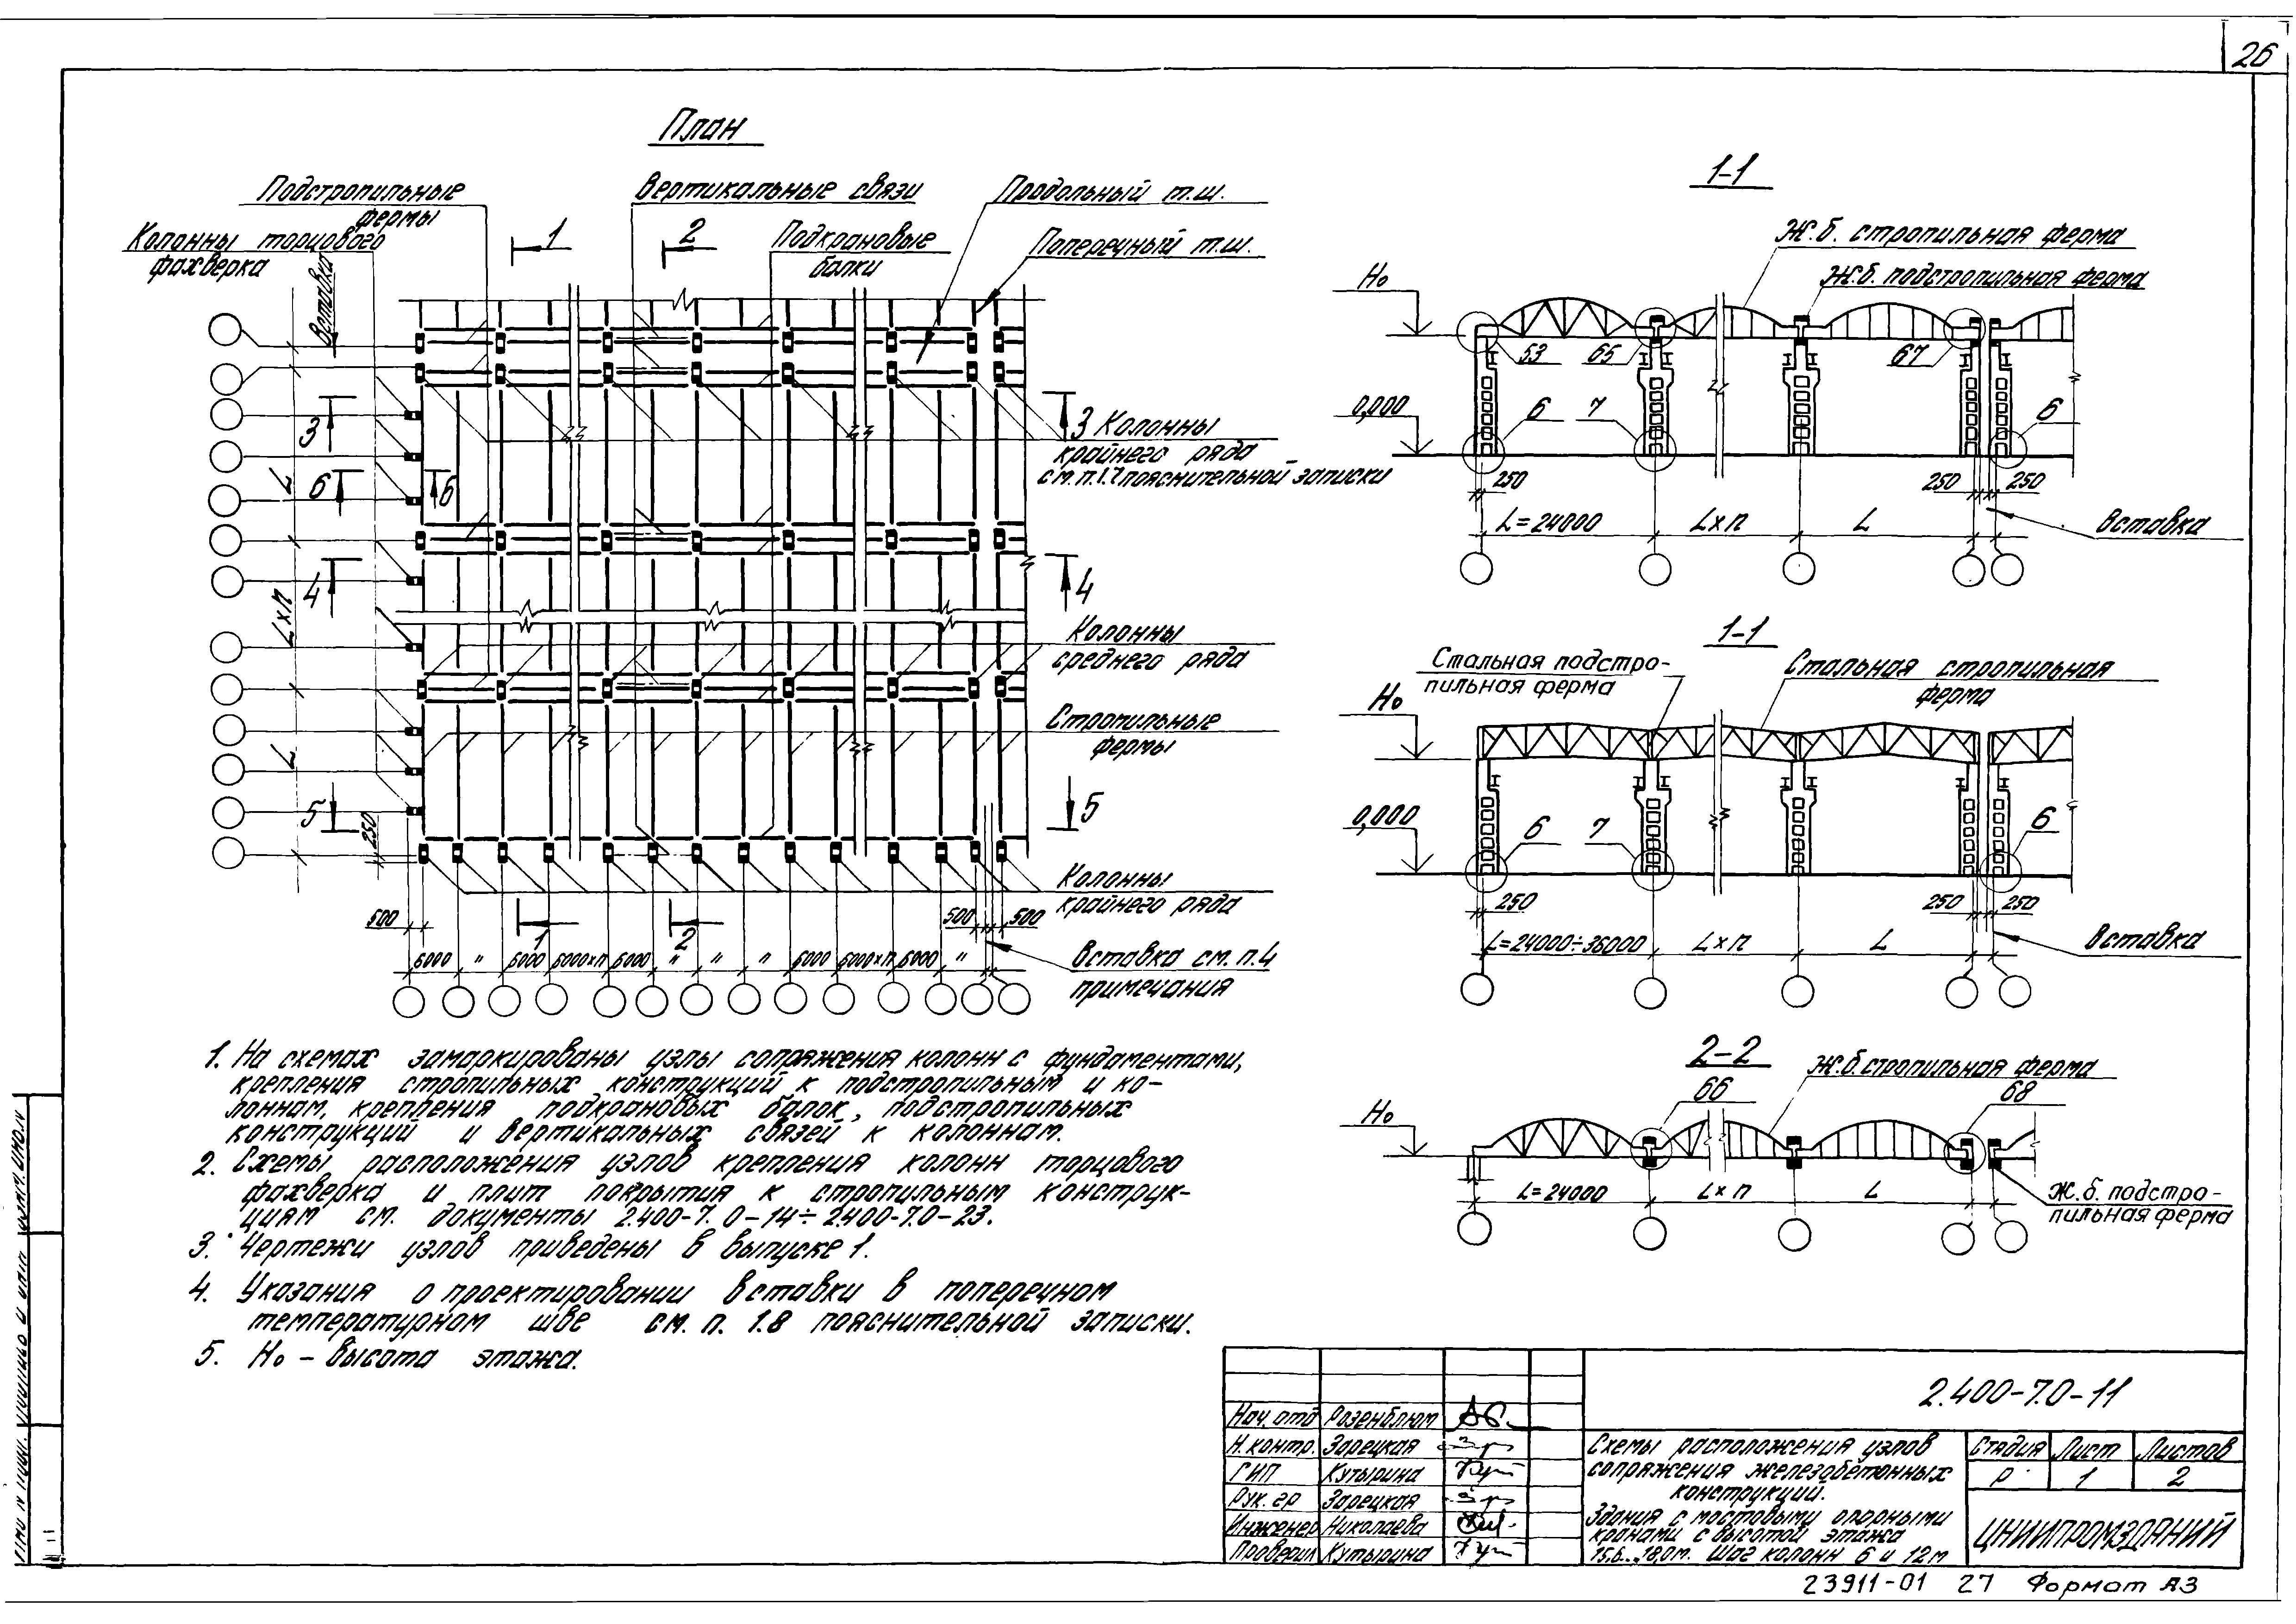 26
План
Подстропильные
фермы
Колонны торцового
фахверка
Вставка
Вертикальные связи
Подкрановые
балки
Продольный т.ш.
Поперечный т.ш.
1
2
3
3
6
6
4
4
5
5
L
L×п
L
250
Колонны
крайнего ряда
см. п. 1.7 пояснительной записки
Колонны
среднего ряда
Стропильные
фермы
Колонны
крайнего ряда
500
1
2
500
500
6000 " 6000 6000×п 6000 " " " 6000 6000×п 6000 "
Вставка см. п. 4
примечания
1. На схемах замаркированы узлы сопряжения колонн с фундаментами,
крепления стропильных конструкций к подстропильным и ко-
лоннам, крепления подкрановых балок, подстропильных
конструкций и вертикальных связей к колоннам.
2. Схемы расположения узлов крепления колонн торцового
фахверка и плит покрытия к стропильным конструк-
циям см. документы 2.400-7. 0-14÷2.400-7.0-23.
3. Чертежи узлов приведены в выпуске 1.
4. Указания о проектировании вставки в поперечном
температурном шве см. п. 1.8 пояснительной записки.
5. Н₀ - высота этажа.
1-1
Ж.б. стропильная ферма
Ж.б. подстропильная ферма
Н₀
53
65
67
0,000
6
7
6
250
250
250
L=24000
L×п
L
Вставка
1-1
Стальная подстро-
пильная ферма
Стальная стропильная
ферма
Н₀
0,000
6
7
6
250
250
250
L=24000÷36000
L×п
L
Вставка
2-2
Ж.б. стропильная ферма
66
68
Н₀
L=24000
L×п
L
Ж.б. подстро-
пильная ферма
2.400-7.0-11
Нач. отд Розенблюм
Н. контр. Зарецкая
ГИП Кутырина
Рук. гр Зарецкая
Инженер Николаева
Проверил Кутырина
Схемы расположения узлов
сопряжения железобетонных
конструкций.
Здания с мостовыми опорными
кранами с высотой этажа
15,6...18,0м. Шаг колонн 6 и 12м
Стадия Лист Листов
Р 1 2
ЦНИИПРОМЗДАНИЙ
23911-01 27 Формат А3